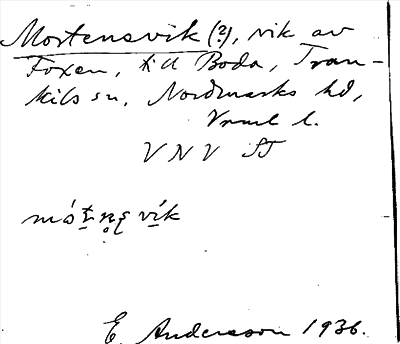 Mortensvik (?), vik av
Foxen, till Boda, Tran-
kils sn, Nordmarks hd,
Vrml l.
VNV ST
mós̠t̠n̥ę vík
E. Andersson 1936.